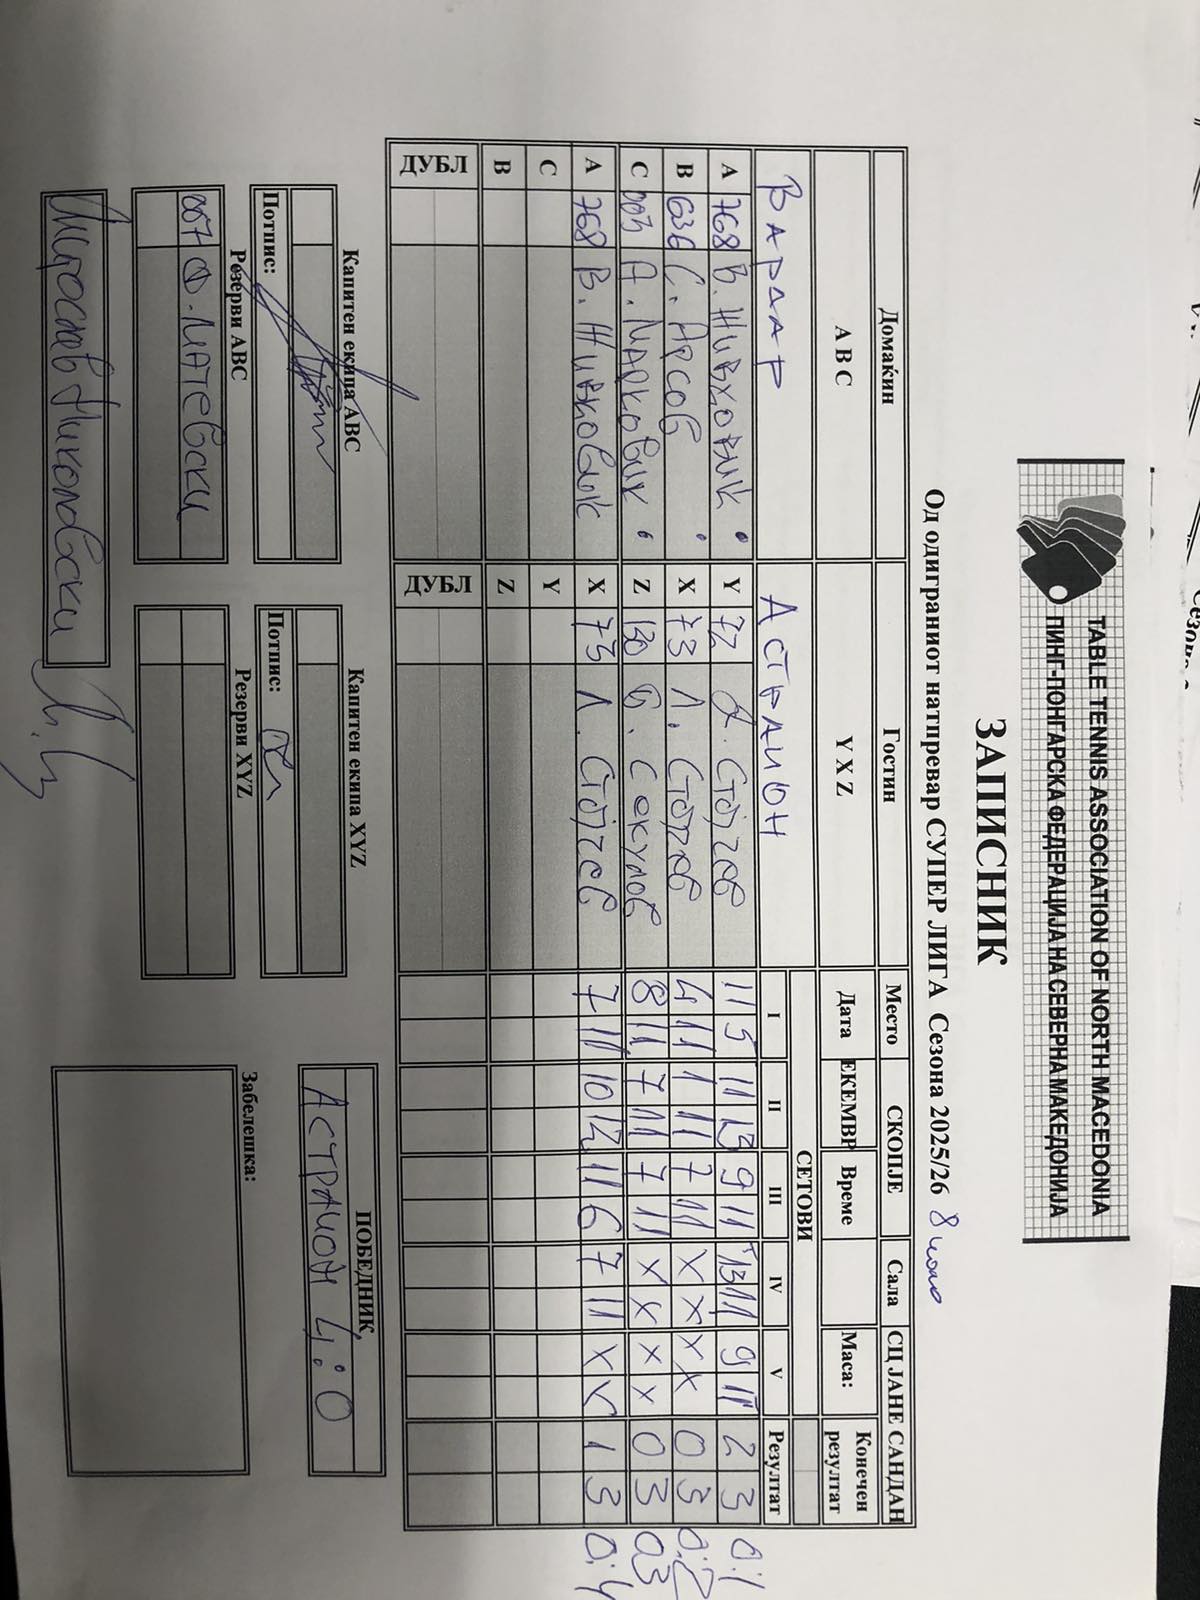 TABLE TENNIS ASSOCIATION OF NORTH MACEDONIA
ПИНГ-ПОНГАРСКА ФЕДЕРАЦИЈА НА СЕВЕРНА МАКЕДОНИЈА
ЗАПИСНИК
Од одиграниот натпревар СУПЕР ЛИГА Сезона 2025/26 8 коло
Домаќин Гостин Место СКОПЈЕ Сала СЦ ЈАНЕ САНДАН
A B C Y X Z Дата ЕКЕМВР Време Маса: Конечен резултат
ВАРДАР АСТРАИОН СЕТОВИ
I II III IV V Резултат
A 768 В. Живковиќ Y 72 Стојчев 11 5 11 13 9 11 13 11 9 11 2 3 0:1
B 636 С. Арсов X 73 Л. Стојчев 4 11 1 11 7 11 X X X X 0 3 0:2
C 003 А. Марковиќ Z 130 Б. Секулов 8 11 7 11 7 11 X X X X 0 3 0:3
A 768 В. Живковиќ X 73 Л. Стојчев 7 11 10 12 11 6 7 11 X X 1 3 0:4
C Y
B Z
ДУБЛ ДУБЛ
Капитен екипа ABC Капитен екипа XYZ ПОБЕДНИК
АСТРАИОН 4:0
Потпис: Потпис:
Резерви ABC Резерви XYZ Забелешка:
007 Ф. МАТЕВСКИ
Мирослав Николовски